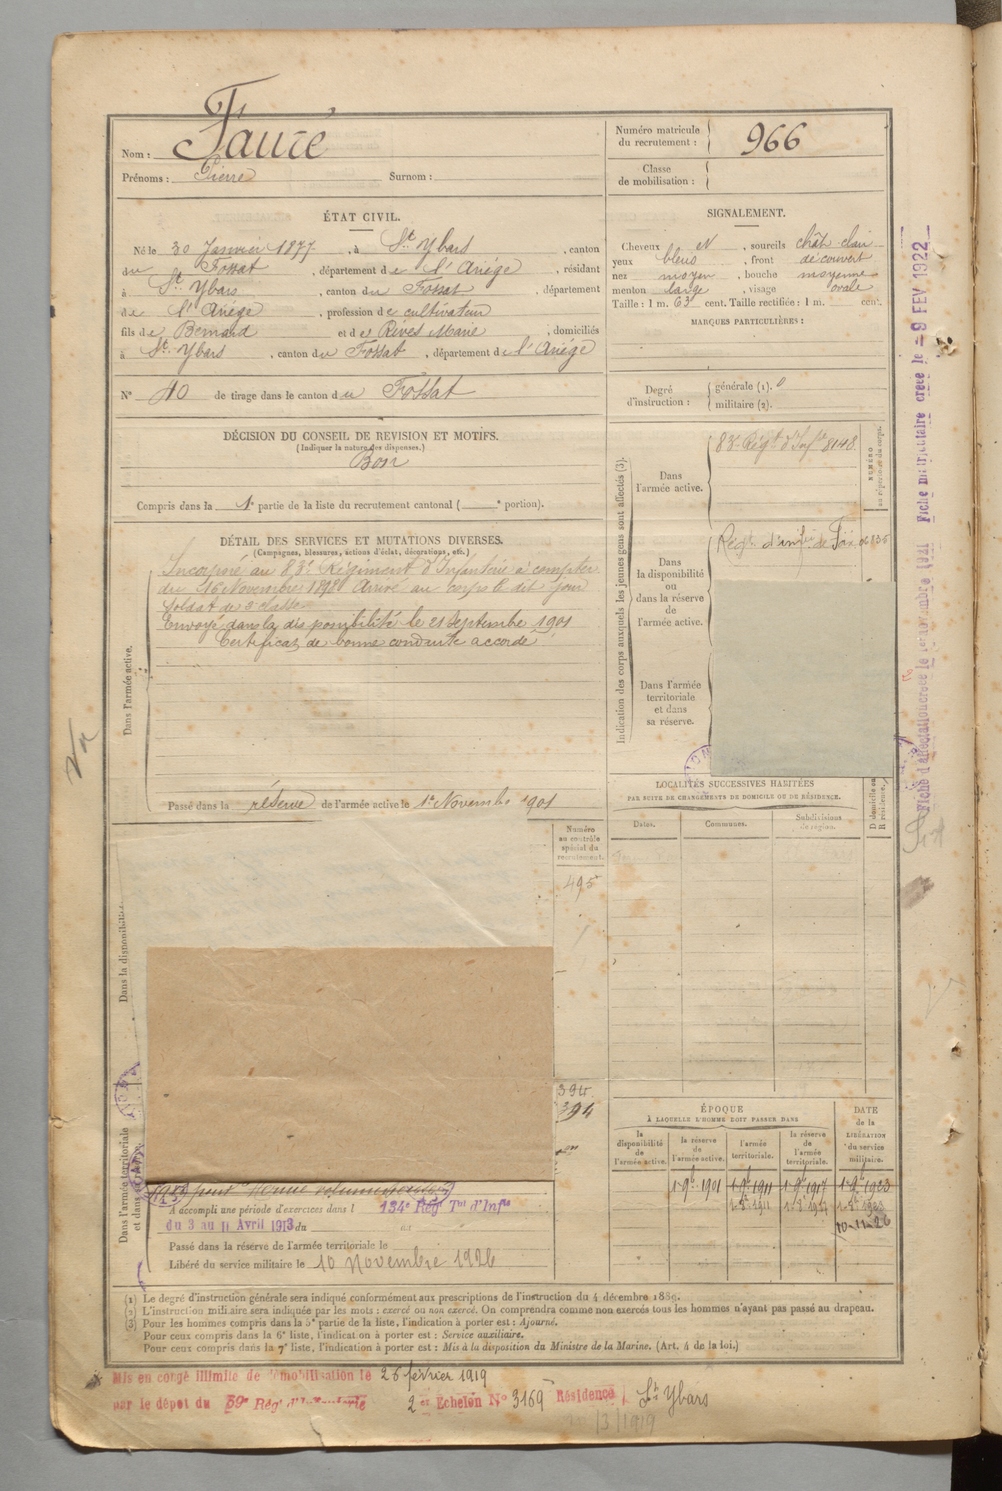 Nom : Fauré
Prénoms : Pierre Surnom :
Numéro matricule du recrutement : 966
Classe de mobilisation :
ÉTAT CIVIL.
Né le 30 Janvier 1877, à St Ybars, canton
du Fossat, département de l'Ariège, résidant
à St Ybars, canton du Fossat, département
de l'Ariège, profession de cultivateur
fils de Bernard et de Rives Marie, domiciliés
à St Ybars, canton du Fossat, département de l'Ariège
N° 40 de tirage dans le canton du Fossat
SIGNALEMENT.
Cheveux et, sourcils chât clair
yeux bleus, front découvert
nez moyen, bouche moyenne
menton large, visage ovale
Taille : 1 m. 63 cent. Taille rectifiée : 1 m. cent.
MARQUES PARTICULIÈRES :
Degré d'instruction : générale (1). 0
militaire (2).
DÉCISION DU CONSEIL DE REVISION ET MOTIFS.
(Indiquer la nature des dispenses.)
Bon
Compris dans la 1e partie de la liste du recrutement cantonal ( e portion).
DÉTAIL DES SERVICES ET MUTATIONS DIVERSES.
(Campagnes, blessures, actions d'éclat, décorations, etc.)
Dans l'armée active.
Incorporé au 83e Régiment d'Infanterie à compter
du 16 Novembre 1898 Arrivé au corps le dit jour
Soldat de 2e classe
Envoyé dans la disponibilité le 21 Septembre 1901
Certificat de bonne conduite accordé
Passé dans la réserve de l'armée active le 1er Novembre 1901
Indication des corps auxquels les jeunes gens sont affectés (3).
Dans l'armée active.
83e Régt d'Infie 8148
NUMÉRO au répertoire du corps.
Dans la disponibilité ou dans la réserve de l'armée active.
Régt d'infie de Foix
Dans l'armée territoriale et dans sa réserve.
LOCALITÉS SUCCESSIVES HABITÉES
PAR SUITE DE CHANGEMENTS DE DOMICILE OU DE RÉSIDENCE.
Dates. Communes. Subdivisions de région. D domicile ou R résidence.
Numéro au contrôle spécial du recrutement.
495
394
394
Dans la disponibilité
Dans l'armée territoriale
A accompli une période d'exercices dans l 134e Régt Tal d'Infie
du 3 au 11 Avril 1913 du au
Passé dans la réserve de l'armée territoriale le
Libéré du service militaire le 10 Novembre 1926
ÉPOQUE
À LAQUELLE L'HOMME DOIT PASSER DANS
DATE de la LIBÉRATION du service militaire.
la disponibilité de l'armée active. la réserve de l'armée active. l'armée territoriale. la réserve de l'armée territoriale.
1-9b-1901 1-9b-1911 1-9b-1917 1-9b-1923
10-11-26
(1) Le degré d'instruction générale sera indiqué conformément aux prescriptions de l'instruction du 4 décembre 1889.
(2) L'instruction militaire sera indiquée par les mots : exercé ou non exercé. On comprendra comme non exercés tous les hommes n'ayant pas passé au drapeau.
(3) Pour les hommes compris dans la 5e partie de la liste, l'indication à porter est : Ajourné.
Pour ceux compris dans la 6e liste, l'indication à porter est : Service auxiliaire.
Pour ceux compris dans la 7e liste, l'indication à porter est : Mis à la disposition du Ministre de la Marine. (Art. 4 de la loi.)
Mis en congé illimité de démobilisation le 26 février 1919
par le dépôt du 59e Régt d'Infanterie 2e Echelon N° 3169 Résidence St Ybars
/3/1919
Fiche d'affectation créée le 10 novembre 1921 Fiche matriculaire créée le -9 FEV 1922